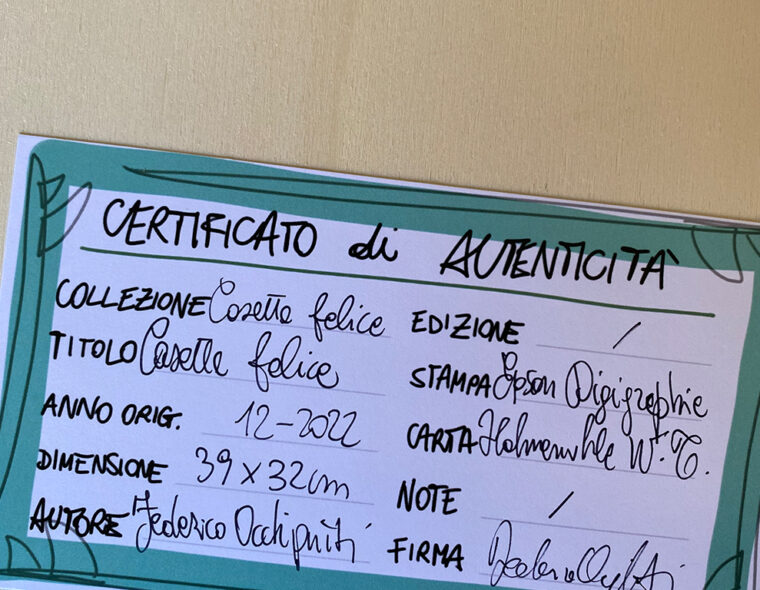 CERTIFICATO di AUTENTICITÀ
COLLEZIONE Casetta felice
TITOLO Casetta felice
ANNO ORIG. 12-2022
DIMENSIONE 39 x 32cm
AUTORE Federico Occhipinti
EDIZIONE /
STAMPA Epson Digigraphie
CARTA Hahnemuhle W.T.
NOTE /
FIRMA